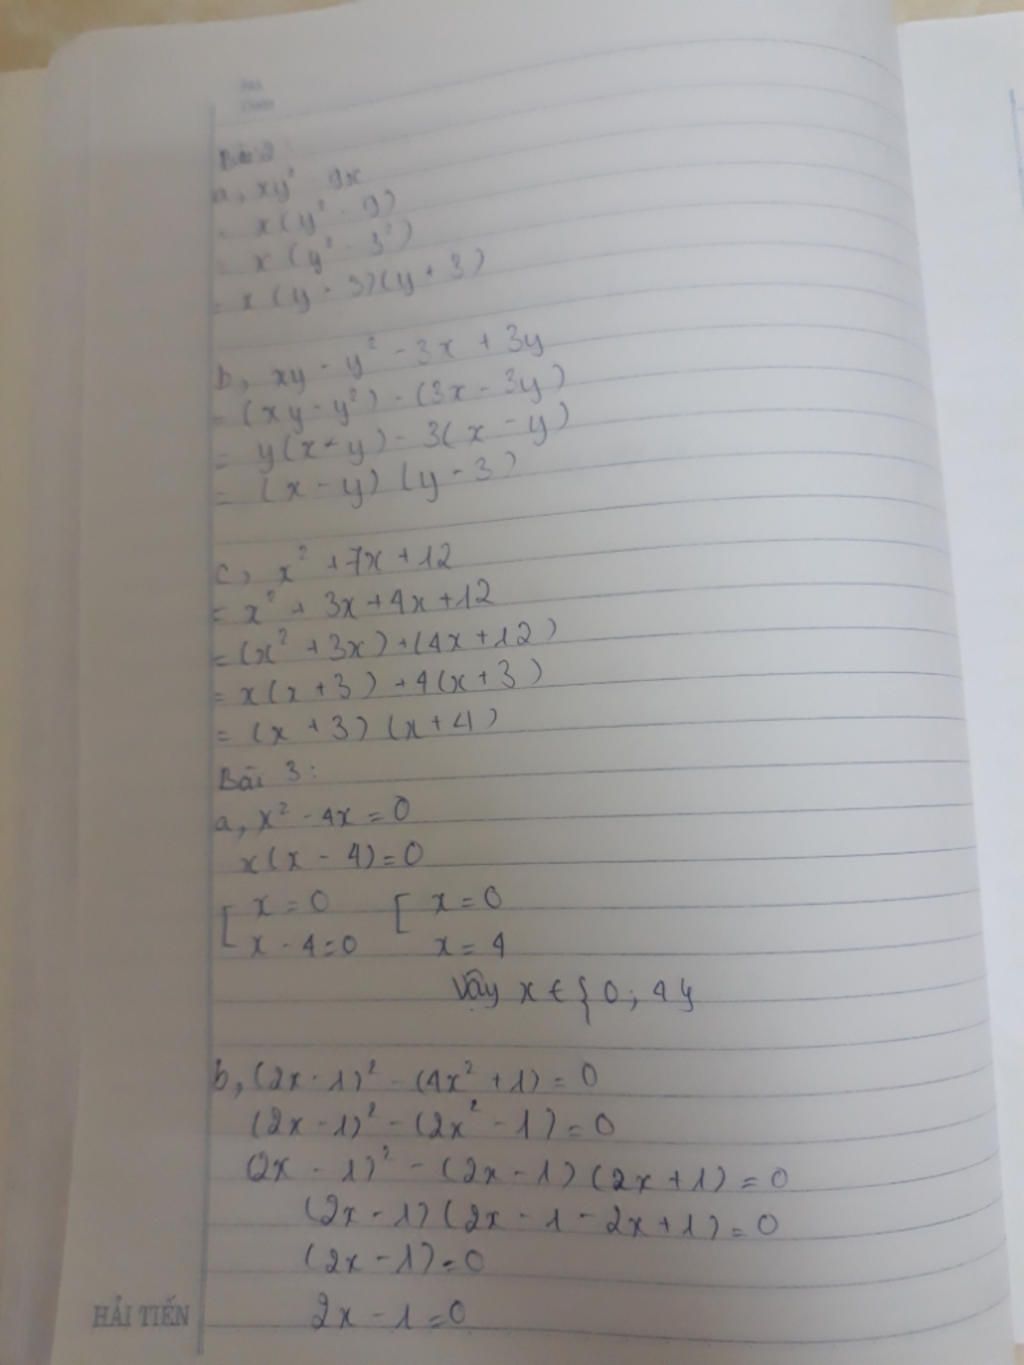 Bài 2
a, xy² 9x
= x(y² - 9)
= x(y² - 3²)
= x(y - 3)(y + 3)
b, xy - y² - 3x + 3y
= (xy - y²) - (3x - 3y)
= y(x - y) - 3(x - y)
= (x - y) (y - 3)
c, x² + 7x + 12
= x² + 3x + 4x + 12
= (x² + 3x) + (4x + 12)
= x(x + 3) + 4(x + 3)
= (x + 3) (x + 4)
Bài 3:
a, x² - 4x = 0
x(x - 4) = 0
[ x = 0 [ x = 0
x - 4 = 0 x = 4
Vậy x ∈ {0; 4}
b, (2x - 1)² - (4x² + 1) = 0
(2x - 1)² - (2x² - 1) = 0
(2x - 1)² - (2x - 1) (2x + 1) = 0
(2x - 1) (2x - 1 - 2x + 1) = 0
(2x - 1) = 0
2x - 1 = 0
HẢI TIẾN